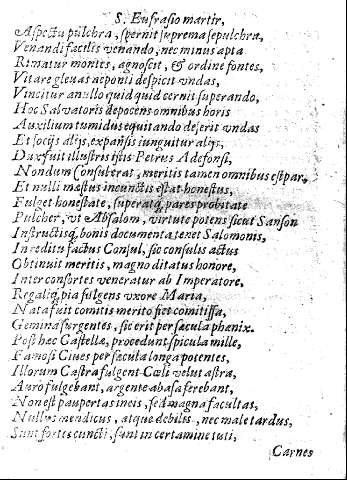 S. Eufrasio martir,
Aspectu pulchra, spernit suprema sepulchra,
Venandi facilis venando, nec minus apta
Rimatur montes, agnoscit, & ordine fontes,
Vitare gleuas ac ponti despicit vndas,
Vincitur a nullo quid quid cernit superando,
Hoc Salvatoris deposcens omnibus horis
Auxilium tumidus equitando deserit vndas
Et socijs alijs, expansis iungitur alijs,
Dux fuit illustris istis Petrus Adefonsi,
Nondum Consul erat, meritis tamen omnibus est par,
Et nulli mæstus in cunctis estat honestus,
Fulget honestate, superatq, pares probitate
Pulcher, vt Absalom, virtute potens sicut Sanson
Instructisq, bonis documenta tenet Salomonis,
In reditu factus Consul, sic consulis actus
Obtinuit meritis, magno ditatus honore,
Inter consortes veneratur ab Imperatore,
Regaliq, pia fulgens vxore Maria,
Nata fuit comitis merito fiet comitissa,
Gemina surgentes, sic erit per sæcula phænix.
Post hæc Castellæ, procedunt spicula mille,
Famosi Ciues per sæcula longa potentes,
Illorum Castra fulgent Cœli velut astra,
Auro fulgebant, argente a basa ferebant,
Non est paupertas in eis, sed magna facultas,
Nullus mendicus, atque debilis, nec male tardus,
Sunt fortes cuncti, sunt in certamine tuti,
Carnes